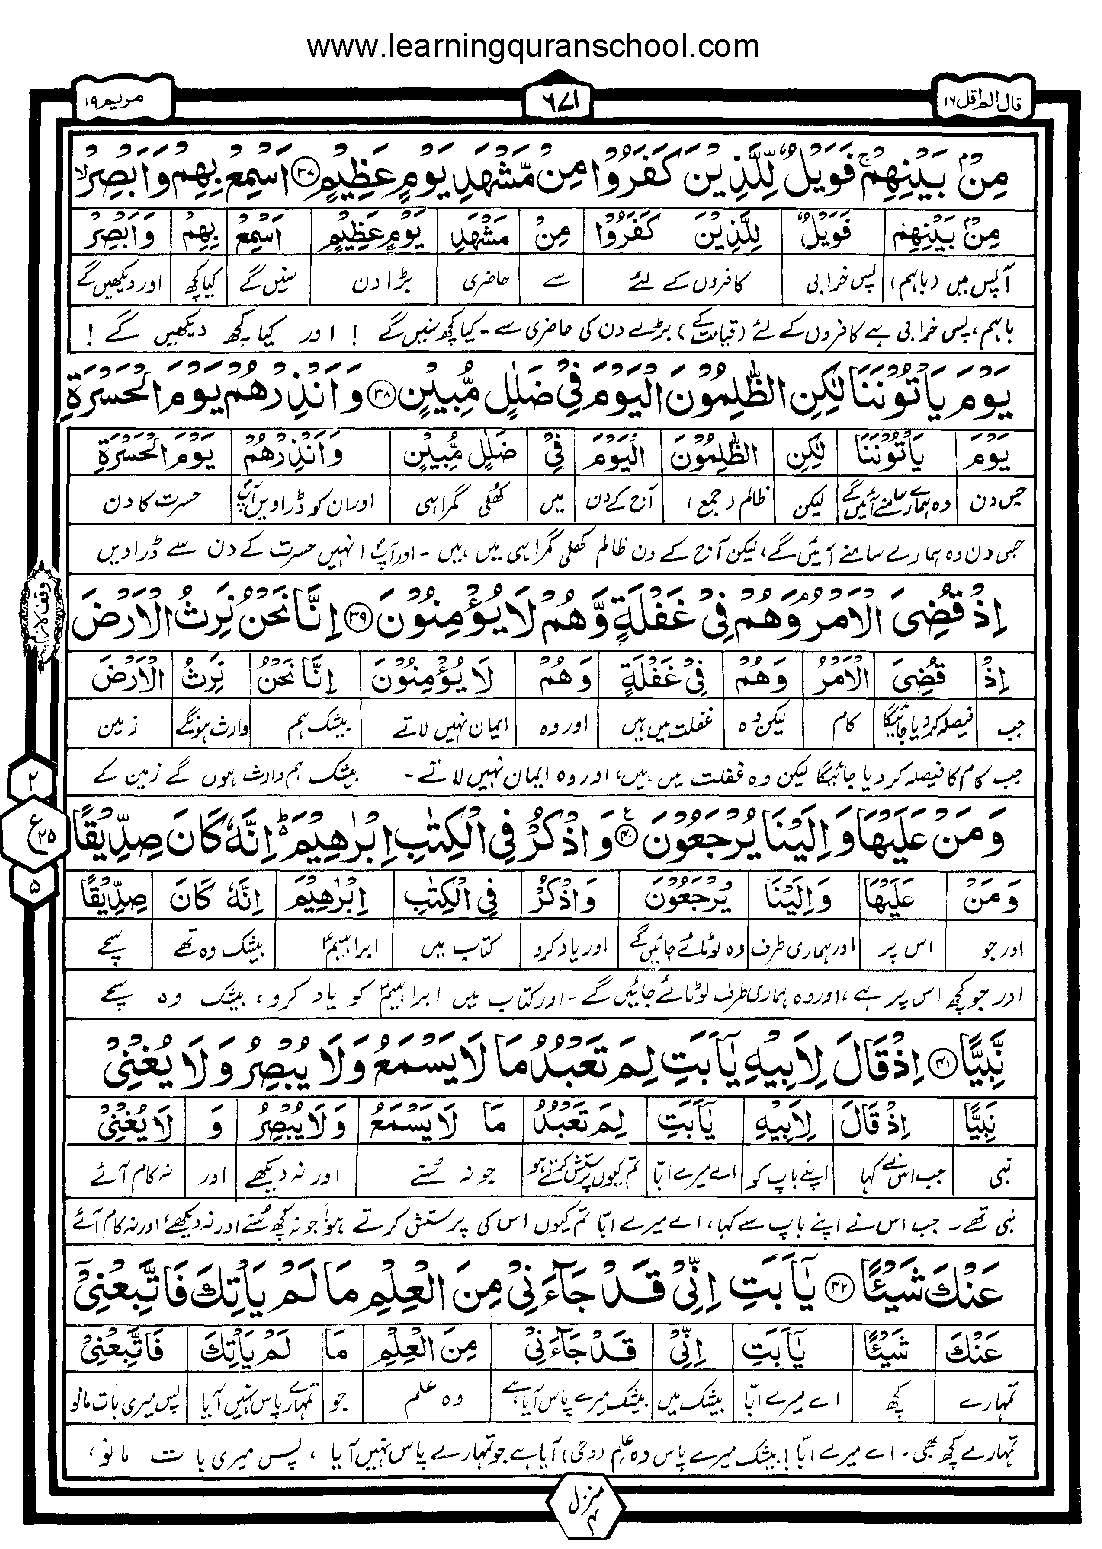 www.learningquranschool.com
قال الم اقل ١٦
٦٧١
مريم ١٩
مِنْۢ بَيْنِهِمْ ۚ فَوَيْلٌ لِّلَّذِيْنَ كَفَرُوْا مِنْ مَّشْهَدِ يَوْمٍ عَظِيْمٍ ﴿۳۷﴾ اَسْمِعْ بِهِمْ وَاَبْصِرْ ۙ
مِنْۢ بَيْنِهِمْ فَوَيْلٌ لِّلَّذِيْنَ كَفَرُوْا مِنْ مَّشْهَدِ يَوْمٍ عَظِيْمٍ اَسْمِعْ بِهِمْ وَاَبْصِرْ
آپس میں (باہم) پس خرابی کافروں کے لئے سے حاضری بڑا دن سنیں گے کیا کچھ اور دیکھیں گے
باہم، پس خرابی ہے کافروں کے لئے (قیامت کے) بڑے دن کی حاضری سے۔ کیا کچھ سنیں گے ! اور کیا کچھ دیکھیں گے !
يَوْمَ يَاْتُوْنَنَا لٰكِنِ الظّٰلِمُوْنَ الْيَوْمَ فِيْ ضَلٰلٍ مُّبِيْنٍ ﴿۳۸﴾ وَاَنْذِرْهُمْ يَوْمَ الْحَسْرَةِ
يَوْمَ يَاْتُوْنَنَا لٰكِنِ الظّٰلِمُوْنَ الْيَوْمَ فِيْ ضَلٰلٍ مُّبِيْنٍ وَاَنْذِرْهُمْ يَوْمَ الْحَسْرَةِ
جس دن وہ ہمارے سامنے آئیں گے لیکن ظالم (جمع) آج کے دن میں کھلی گمراہی اور ان کو ڈراویں آپؐ حسرت کا دن
جس دن وہ ہمارے سامنے آئیں گے، لیکن آج کے دن ظالم کھلی گمراہی میں ہیں۔ اور آپؐ انہیں حسرت کے دن سے ڈراویں
اِذْ قُضِيَ الْاَمْرُ ۘ وَهُمْ فِيْ غَفْلَةٍ وَّهُمْ لَا يُؤْمِنُوْنَ ﴿۳۹﴾ اِنَّا نَحْنُ نَرِثُ الْاَرْضَ
وقف لازم
اِذْ قُضِيَ الْاَمْرُ وَهُمْ فِيْ غَفْلَةٍ وَهُمْ لَا يُؤْمِنُوْنَ اِنَّا نَحْنُ نَرِثُ الْاَرْضَ
جب فیصلہ کردیا جائیگا کام لیکن وہ غفلت میں ہیں اور وہ ایمان نہیں لاتے بیشک ہم وارث ہونگے زمین
جب کام کا فیصلہ کر دیا جائیگا لیکن وہ غفلت میں ہیں، اور وہ ایمان نہیں لاتے۔ بیشک ہم وارث ہوں گے زمین کے
وَمَنْ عَلَيْهَا وَاِلَيْنَا يُرْجَعُوْنَ ﴿۴۰﴾ وَاذْكُرْ فِي الْكِتٰبِ اِبْرٰهِيْمَ ۬ؕ اِنَّهٗ كَانَ صِدِّيْقًا
٢
ع ٢٥
٥
وَمَنْ عَلَيْهَا وَاِلَيْنَا يُرْجَعُوْنَ وَاذْكُرْ فِي الْكِتٰبِ اِبْرٰهِيْمَ اِنَّهٗ كَانَ صِدِّيْقًا
اور جو اس پر اور ہماری طرف وہ لوٹائے جائیں گے اور یاد کرو کتاب میں ابراہیمؑ بیشک وہ تھے سچے
اور جو کچھ اس پر ہے، اور وہ ہماری طرف لوٹائے جائیں گے۔ اور کتاب میں ابراہیمؑ کو یاد کرو، بیشک وہ سچے
نَّبِيًّا ﴿۴۱﴾ اِذْ قَالَ لِاَبِيْهِ يٰۤاَبَتِ لِمَ تَعْبُدُ مَا لَا يَسْمَعُ وَلَا يُبْصِرُ وَلَا يُغْنِيْ
نَبِيًّا اِذْ قَالَ لِاَبِيْهِ يٰۤاَبَتِ لِمَ تَعْبُدُ مَا لَا يَسْمَعُ وَلَا يُبْصِرُ وَ لَا يُغْنِيْ
نبی جب اس نے کہا اپنے باپ کو اے میرے ابّا تم کیوں پرستش کرتے ہو جو نہ سنے اور نہ دیکھے اور نہ کام آئے
نبی تھے۔ جب اس نے اپنے باپ سے کہا، اے میرے ابّا تم کیوں اس کی پرستش کرتے ہو؟ جو نہ کچھ سنے اور نہ دیکھے، اور نہ کام آئے
عَنْكَ شَيْـًٔا ﴿۴۲﴾ يٰۤاَبَتِ اِنِّيْ قَدْ جَآءَنِيْ مِنَ الْعِلْمِ مَا لَمْ يَاْتِكَ فَاتَّبِعْنِيْۤ
عَنْكَ شَيْـًٔا يٰۤاَبَتِ اِنِّيْ قَدْ جَآءَنِيْ مِنَ الْعِلْمِ مَا لَمْ يَاْتِكَ فَاتَّبِعْنِيْ
تمہارے کچھ اے میرے ابّا بیشک میں بیشک میرے پاس آیا ہے وہ علم جو تمہارے پاس نہیں آیا پس میری بات مانو
تمہارے کچھ بھی۔ اے میرے ابّا! بیشک میرے پاس وہ علم (وحی) آیا ہے جو تمہارے پاس نہیں آیا، پس میری بات مانو،
منزل ٤